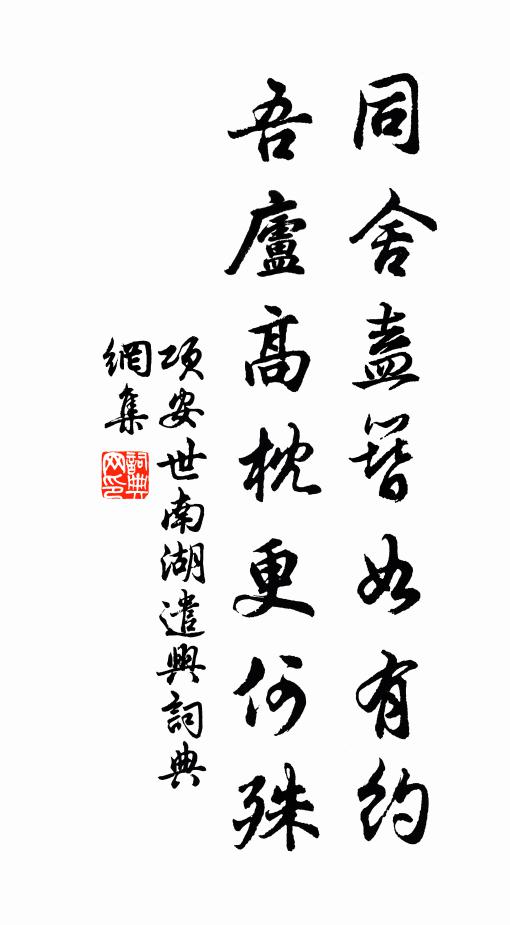 同舍盍簪如有約
吾廬高枕更何殊
項安世南湖遣興詞典
網集
詞典網印